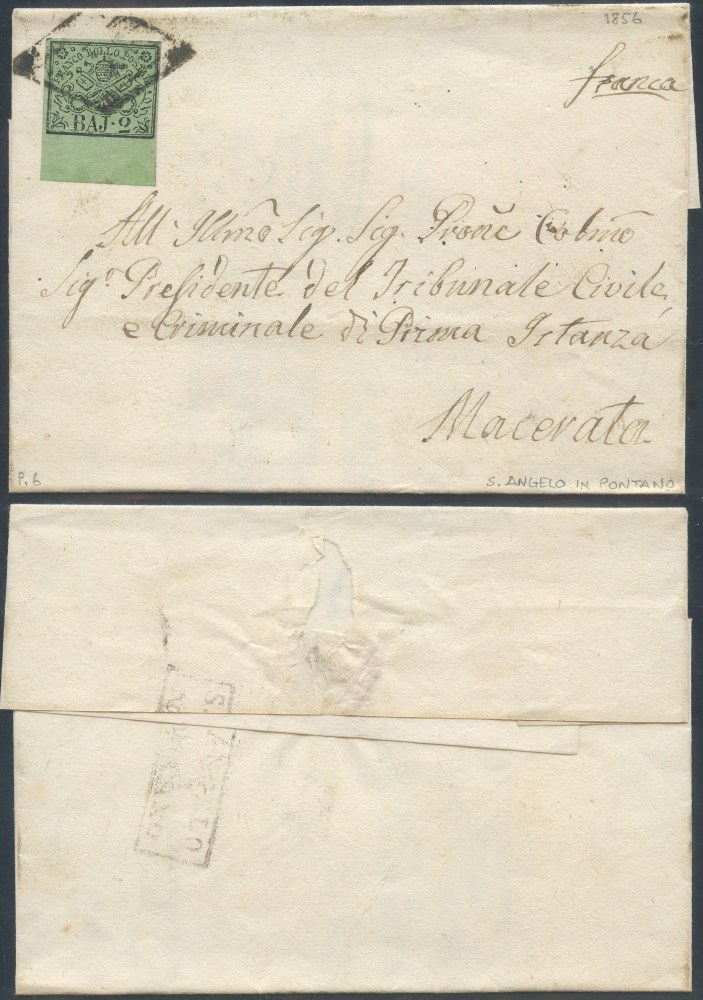 1856
franca
FRANCO BOLLO POSTALE
BAJ. 2
All' Illmo Sig. Sig. Prone Colmo
Sigr Presidente del Tribunale Civile
e Criminale di Prima Istanza
Macerata
P. 6
S. ANGELO IN PONTANO
S. ANGELO